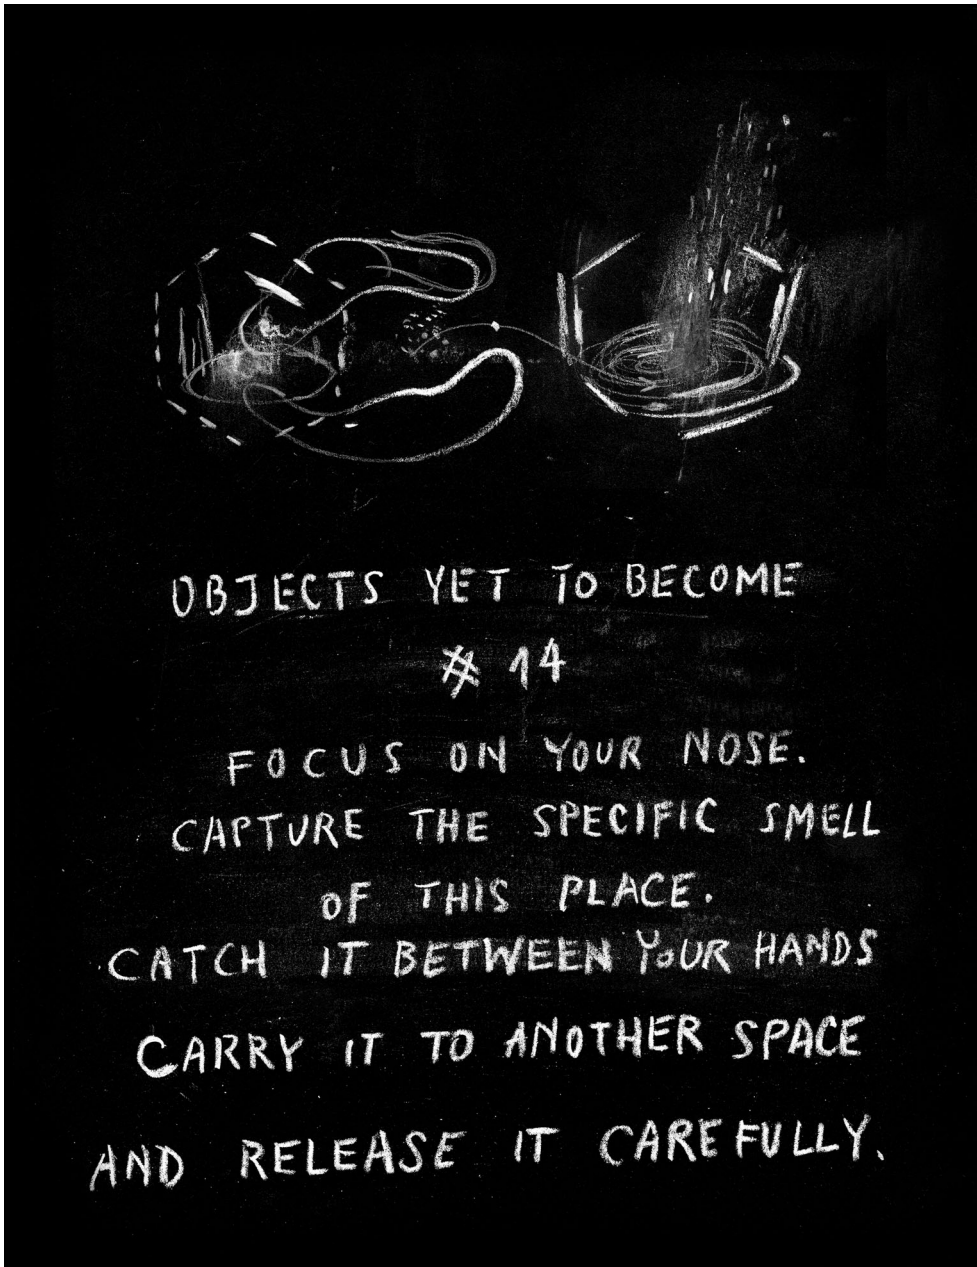 OBJECTS YET TO BECOME
# 14
FOCUS ON YOUR NOSE.
CAPTURE THE SPECIFIC SMELL
OF THIS PLACE.
CATCH IT BETWEEN YOUR HANDS
CARRY IT TO ANOTHER SPACE
AND RELEASE IT CAREFULLY.